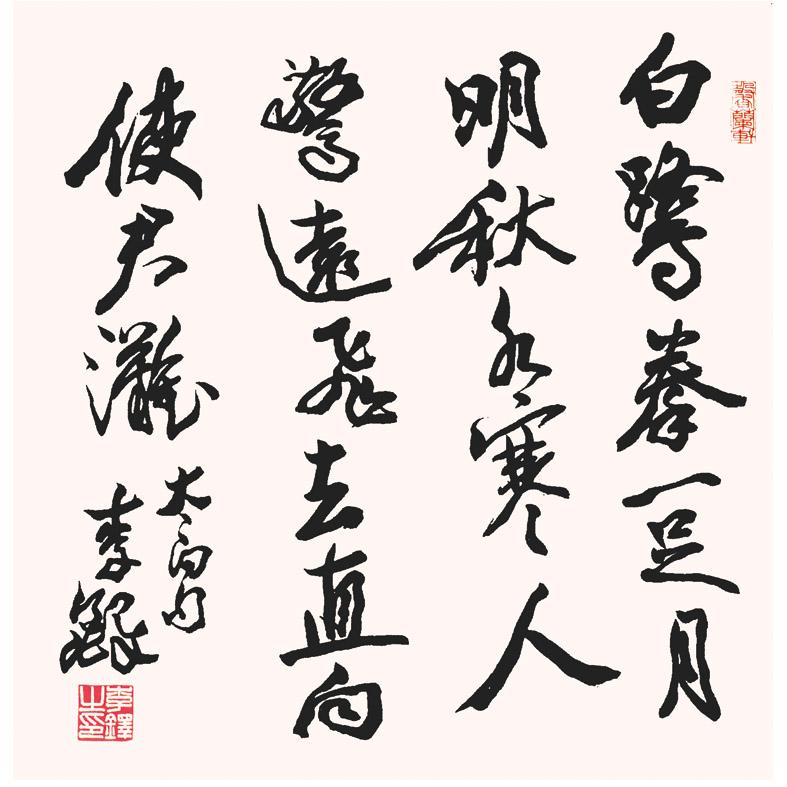 白鷺拳一足月
明秋水寒人
驚遠飛去直向
使君灘
太白句
李鐸
李鐸之印